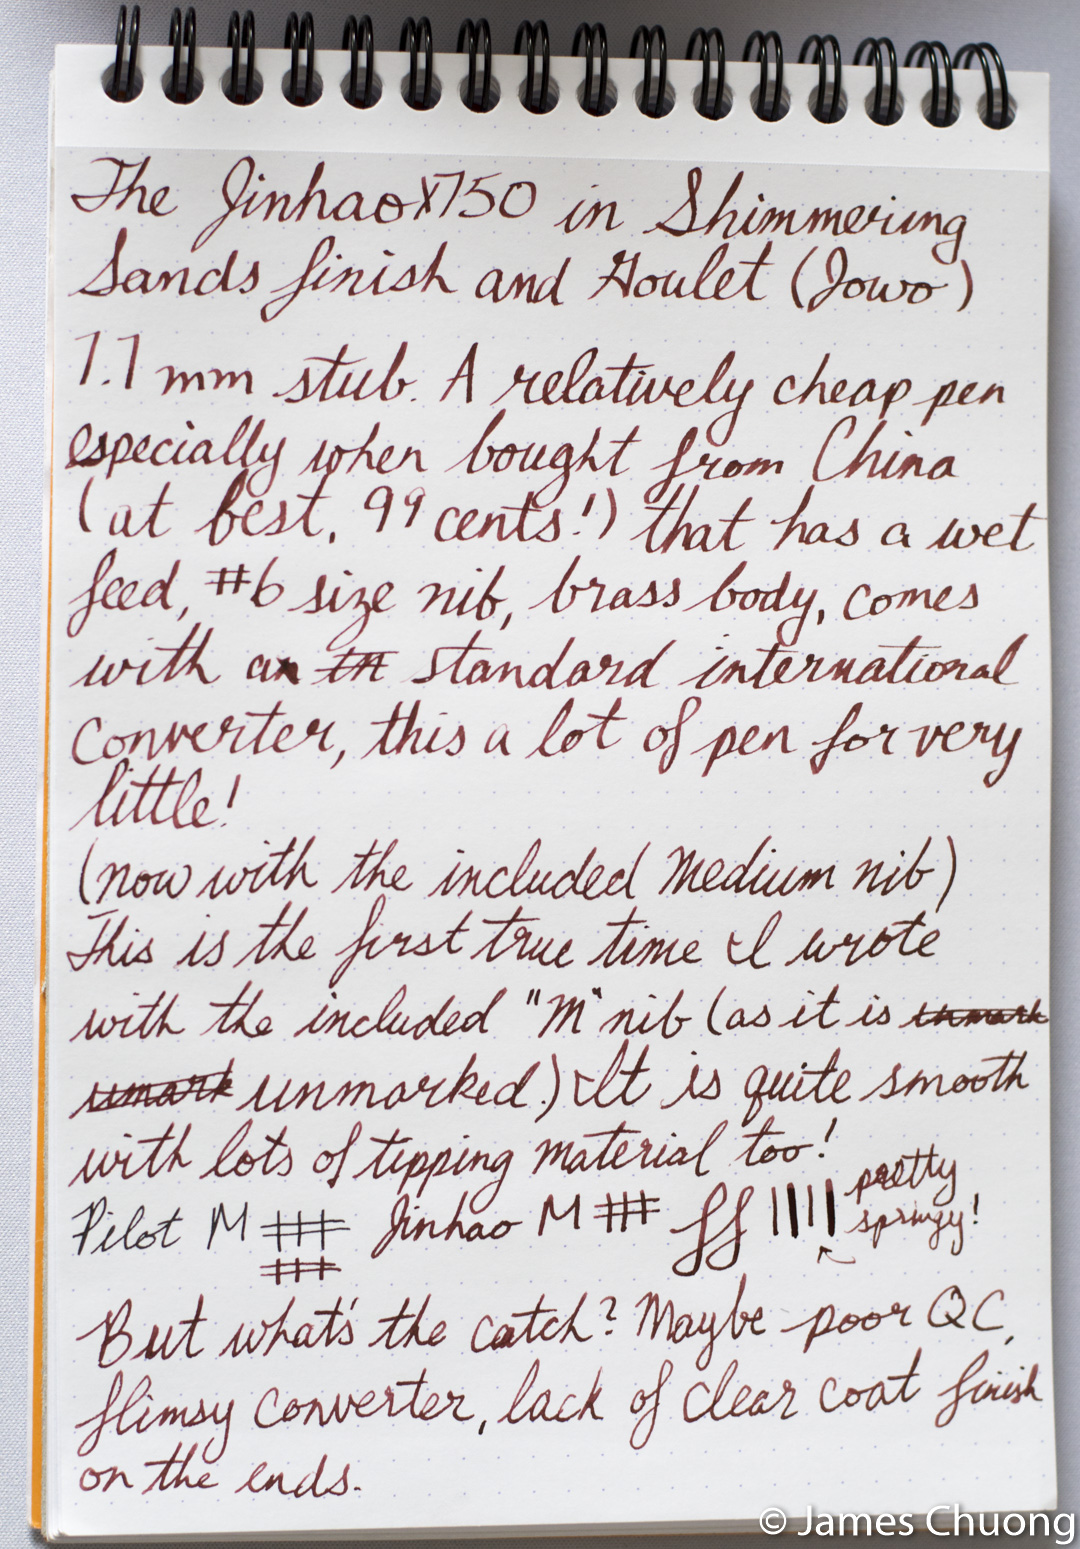 The Jinhao X750 in Shimmering
Sands finish and Goulet (Jowo)
1.1 mm stub. A relatively cheap pen
especially when bought from China
(at best, 99 cents!) that has a wet
feed, #6 size nib, brass body, comes
with an in standard international
converter, this a lot of pen for very
little!
(now with the included Medium nib)
This is the first true time I wrote
with the included "M" nib (as it is unmark
umark unmarked.) It is quite smooth
with lots of tipping material too!
Pilot M ### Jinhao M ### ff |||| pretty
springy!
But what's the catch? Maybe poor QC,
flimsy converter, lack of clear coat finish
on the ends.
© James Chuong